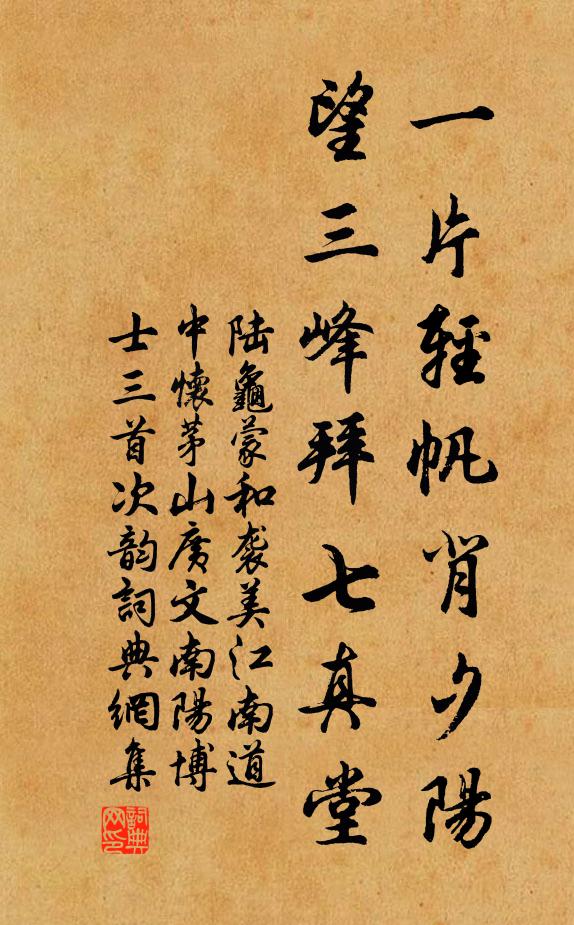 一片輕帆背夕陽
望三峰拜七真堂
陆龜蒙和袭美江南道
中懷茅山廣文南陽博
士三首次韵詞典網集
詞典网印